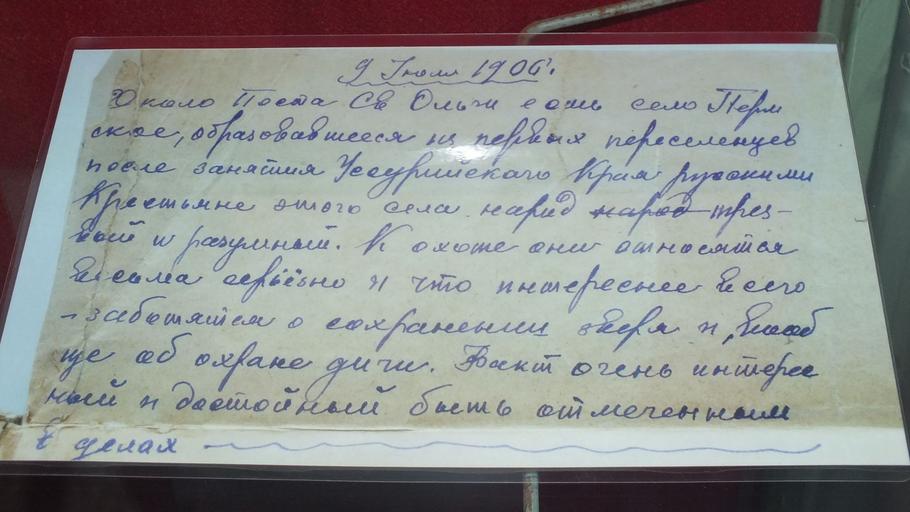 9 Июля 1906 г.
Около Поста Св Ольги есть село Перм
ское, образовавшееся из первых переселенцев
после занятия Уссурийского Края русскими
Крестьяне этого села народ народ трез-
вый и разумный. К охоте они относятся
весьма серьёзно и что интереснее всего
- заботятся о сохранении зверя и, вооб
ще об охране дичи. Факт очень интерес
ный и достойный быть отмеченным
в делах